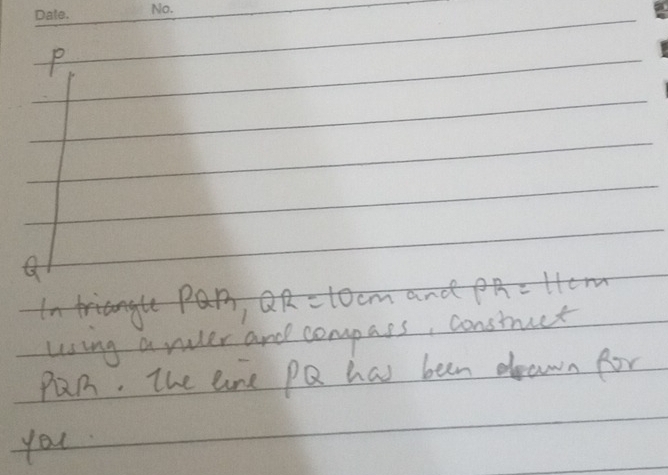 Date. No.
P
Q
In triangle PQR, QR = 10cm and PR = 11cm
Using a ruler and compass, construct
PQR. The line PQ has been drawn for
you.